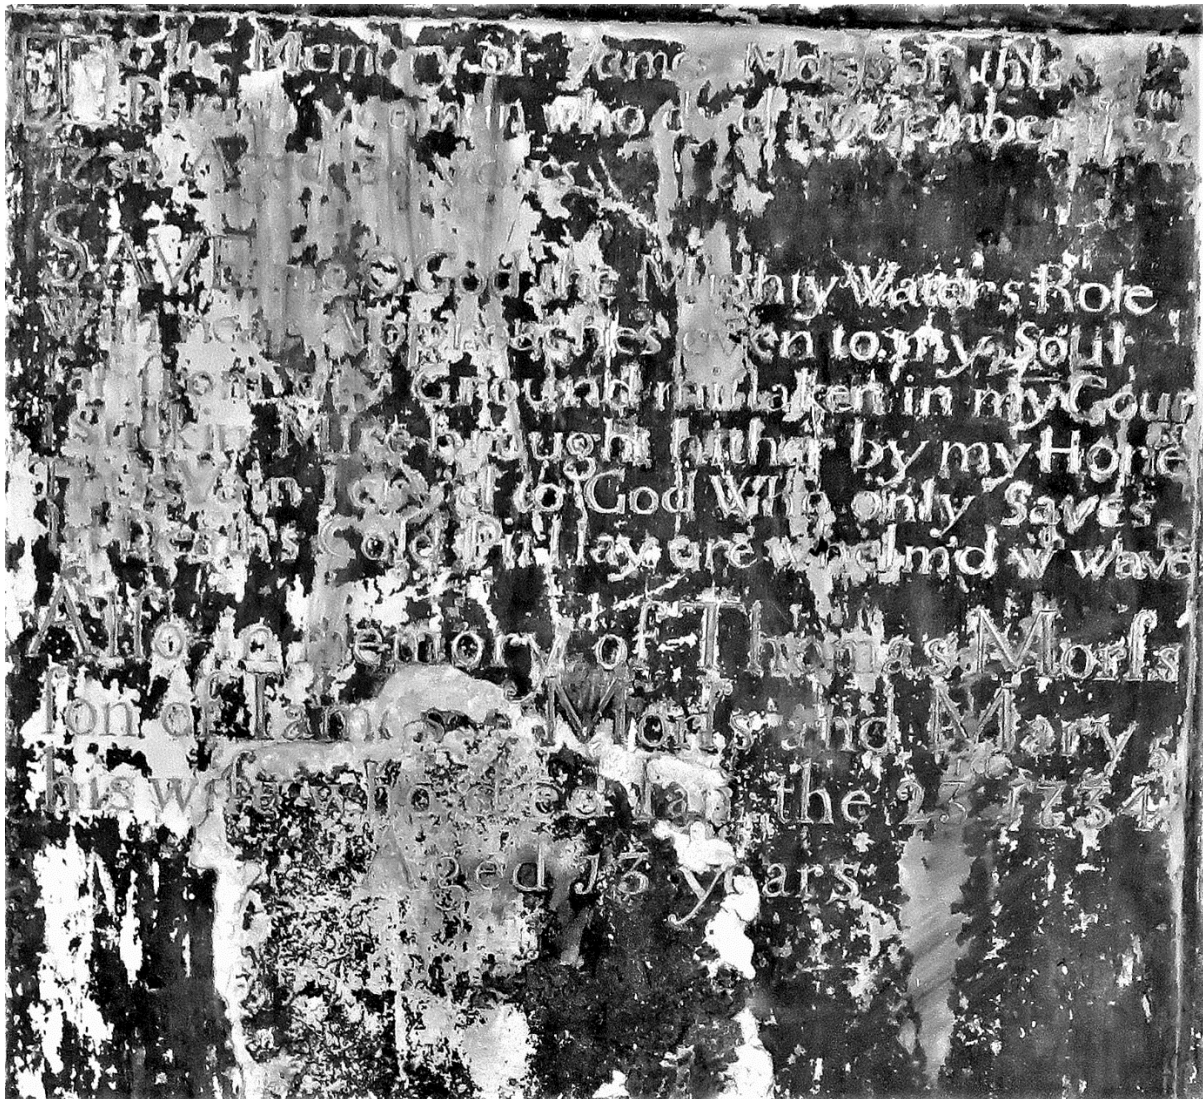 To the Memory of James Morss of this
Parish yeoman who died November
1730 Aged
SAVE me O God the Mighty Waters Role
With near Approaches even to my Soul
Far from dry Ground mistaken in my Cour
I stick in Mire brought hither by my Horse
Thus vain I cryed to God Who only Saves
In Deaths Cold Pitt I lay ore whaelmd w wave
Also in memory of Thomas Morſs
ſon of Iames Morſs and Mary
his wife who died Ian the 23 1734
Aged 13 years